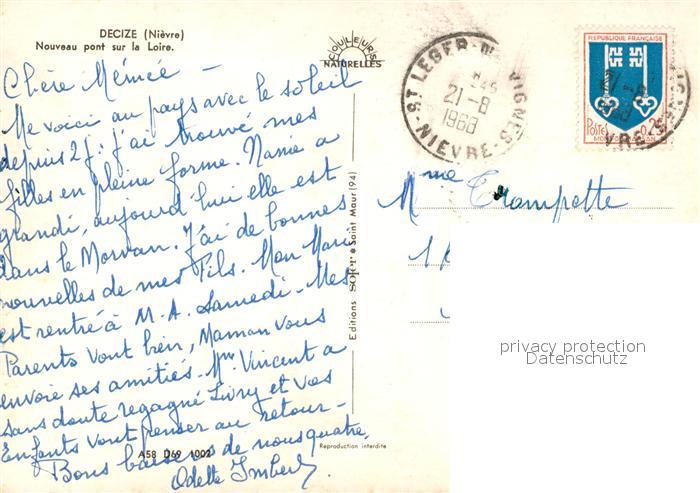 DECIZE (Nièvre)
Nouveau pont sur la Loire.
COULEURS
NATURELLES
Chère Mémée —
Me voici au pays avec le soleil
depuis 2 j. j'ai trouvé mes
filles en pleine forme. Nanie a
grandi, aujourd'hui elle est
dans le Morvan. J'ai de bonnes
nouvelles de mes Fils. Mon Mari
est rentré à M.A. Samedi. Mes
Parents vont bien, Maman vous
envoie ses amitiés. Mme Vincent a
sans doute regagné Livry et vos
Enfants vont penser au retour —
Bons baisers de nous quatre.
Odette Imbert
A58 D69 1002
Reproduction interdite
Editions SOFT • Saint Maur (94)
ST LEGER
21-8
1968
NIEVRE
REPUBLIQUE FRANÇAISE
Postes
21-8
1968
Mme Trompette
privacy protection
Datenschutz